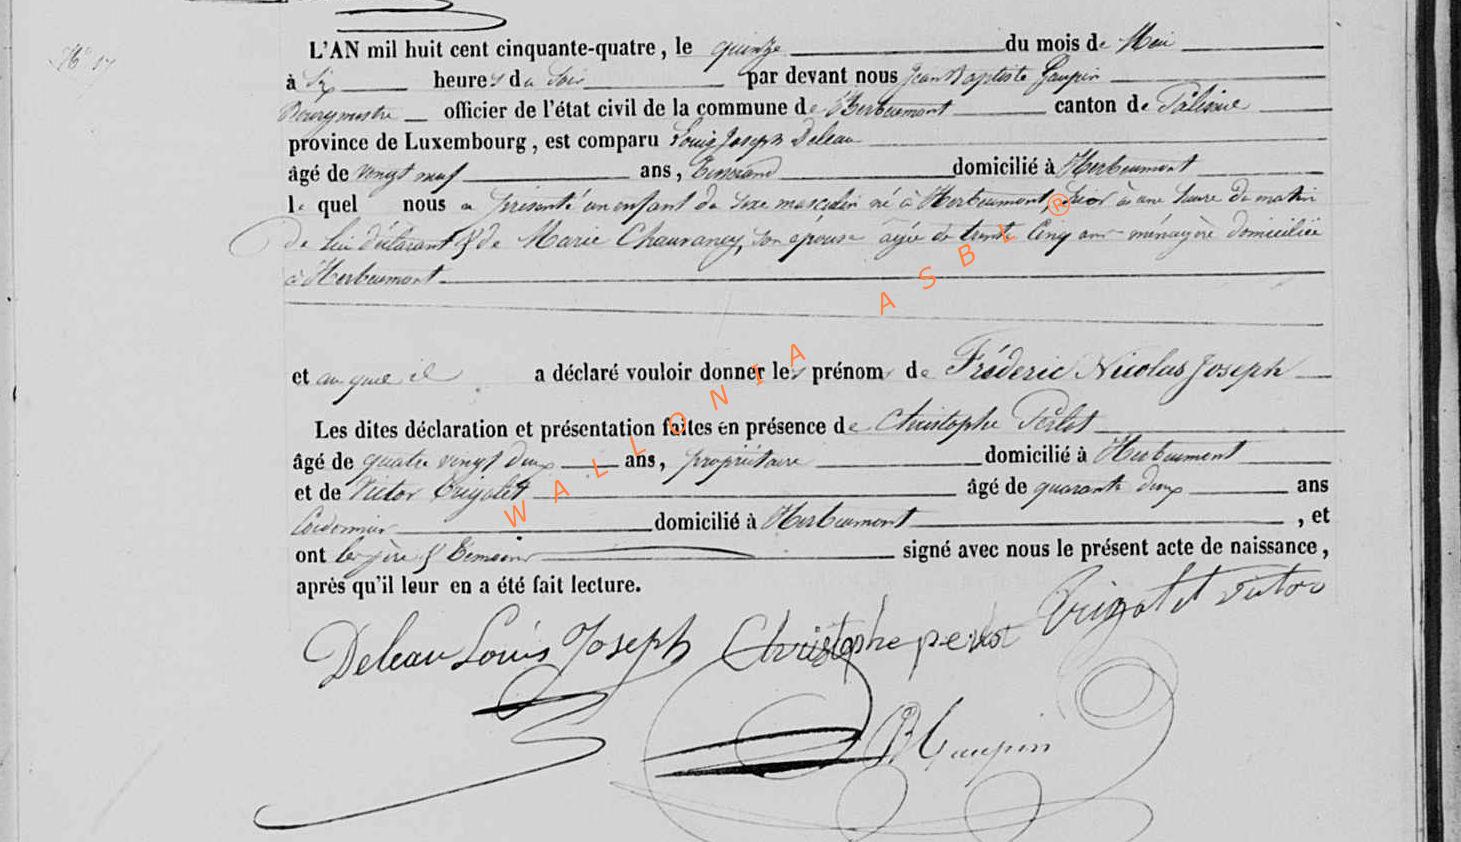 N° 17
L'AN mil huit cent cinquante-quatre, le quinze du mois de Mai
à six heures du soir par devant nous Jean Baptiste Gaupin
Bourgmestre officier de l'état civil de la commune de Herbeumont canton de Paliseul
province de Luxembourg, est comparu Louis Joseph Deleau
âgé de vingt neuf ans, Tisserand domicilié à Herbeumont
le quel nous a présenté un enfant du sexe masculin né à Herbeumont, hier à une heure du matin
de lui déclarant & de Marie Chauvancy, son épouse âgée de trente cinq ans ménagère domiciliée
à Herbeumont
et auquel il a déclaré vouloir donner les prénoms de Fréderic Nicolas Joseph
Les dites déclaration et présentation faites en présence de Christophe Perlot
âgé de quatre vingt deux ans, propriétaire domicilié à Herbeumont
et de Victor Trigolet âgé de quarante deux ans
Cordonnier domicilié à Herbeumont, et
ont les père & Témoins signé avec nous le présent acte de naissance,
après qu'il leur en a été fait lecture.
Deleau Louis Joseph Christophe perlot victor
JB Gaupin
WALLONIA ASBL ®